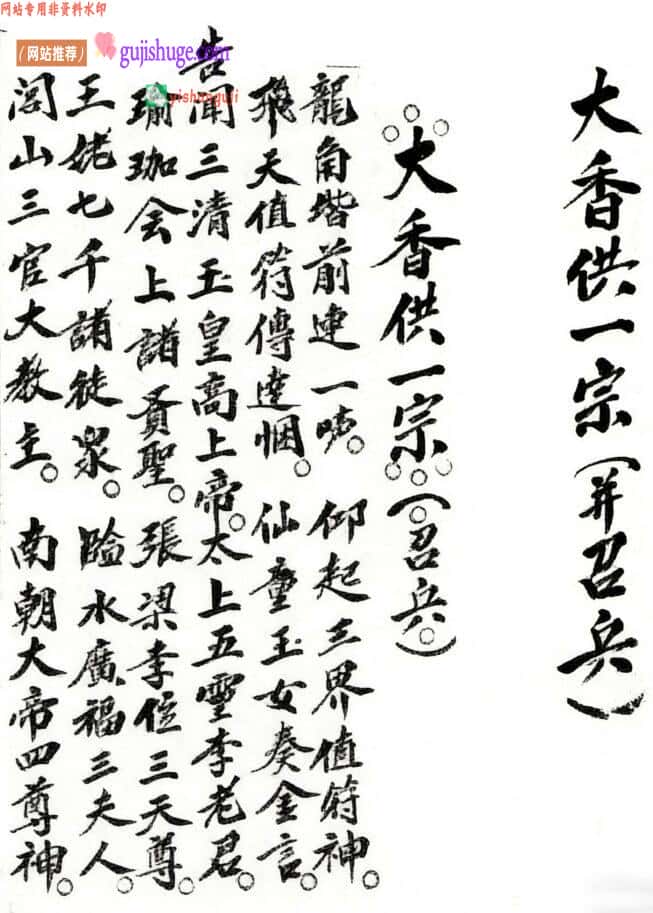 网站专用非资料水印
(网站推荐) gujishuge.com
yishuguji
大香供一宗(并召兵)
大香供一宗。(召兵)
龍角堦前連一吹。仰起三界值符神。
飛天值符傳達悃。仙童玉女奏金言。
告聞三清玉皇高上帝。太上五靈李老君。
瑜珈会上諸賢聖。張梁李位三天尊。
王姥七千諸徒衆。臨水廣福三夫人。
閭山三官大教主。南朝大帝四尊神。